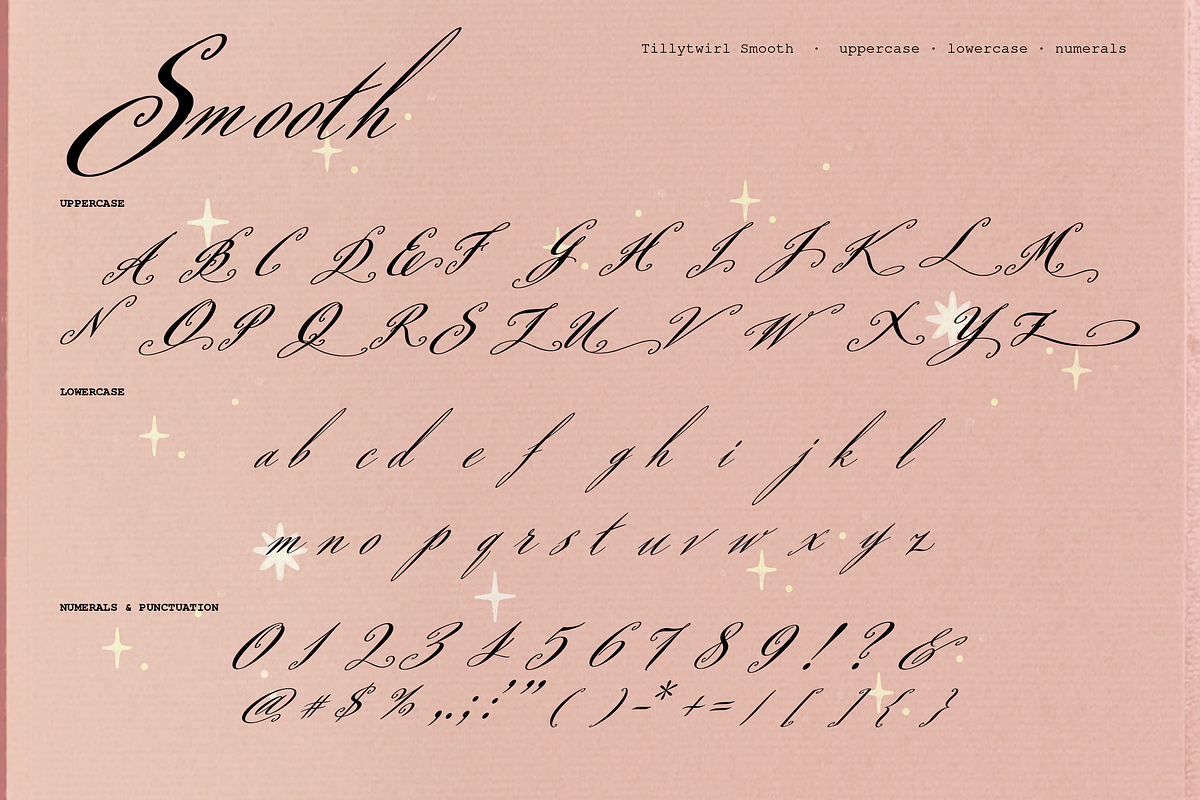 Smooth
Tillytwirl Smooth · uppercase · lowercase · numerals
UPPERCASE
A B C D E F G H I J K L M
N O P Q R S T U V W X Y Z
LOWERCASE
a b c d e f g h i j k l
m n o p q r s t u v w x y z
NUMERALS & PUNCTUATION
0 1 2 3 4 5 6 7 8 9 ! ? &
@ # $ % , . ; : ’ ” ( ) - * + = / [ ] { }